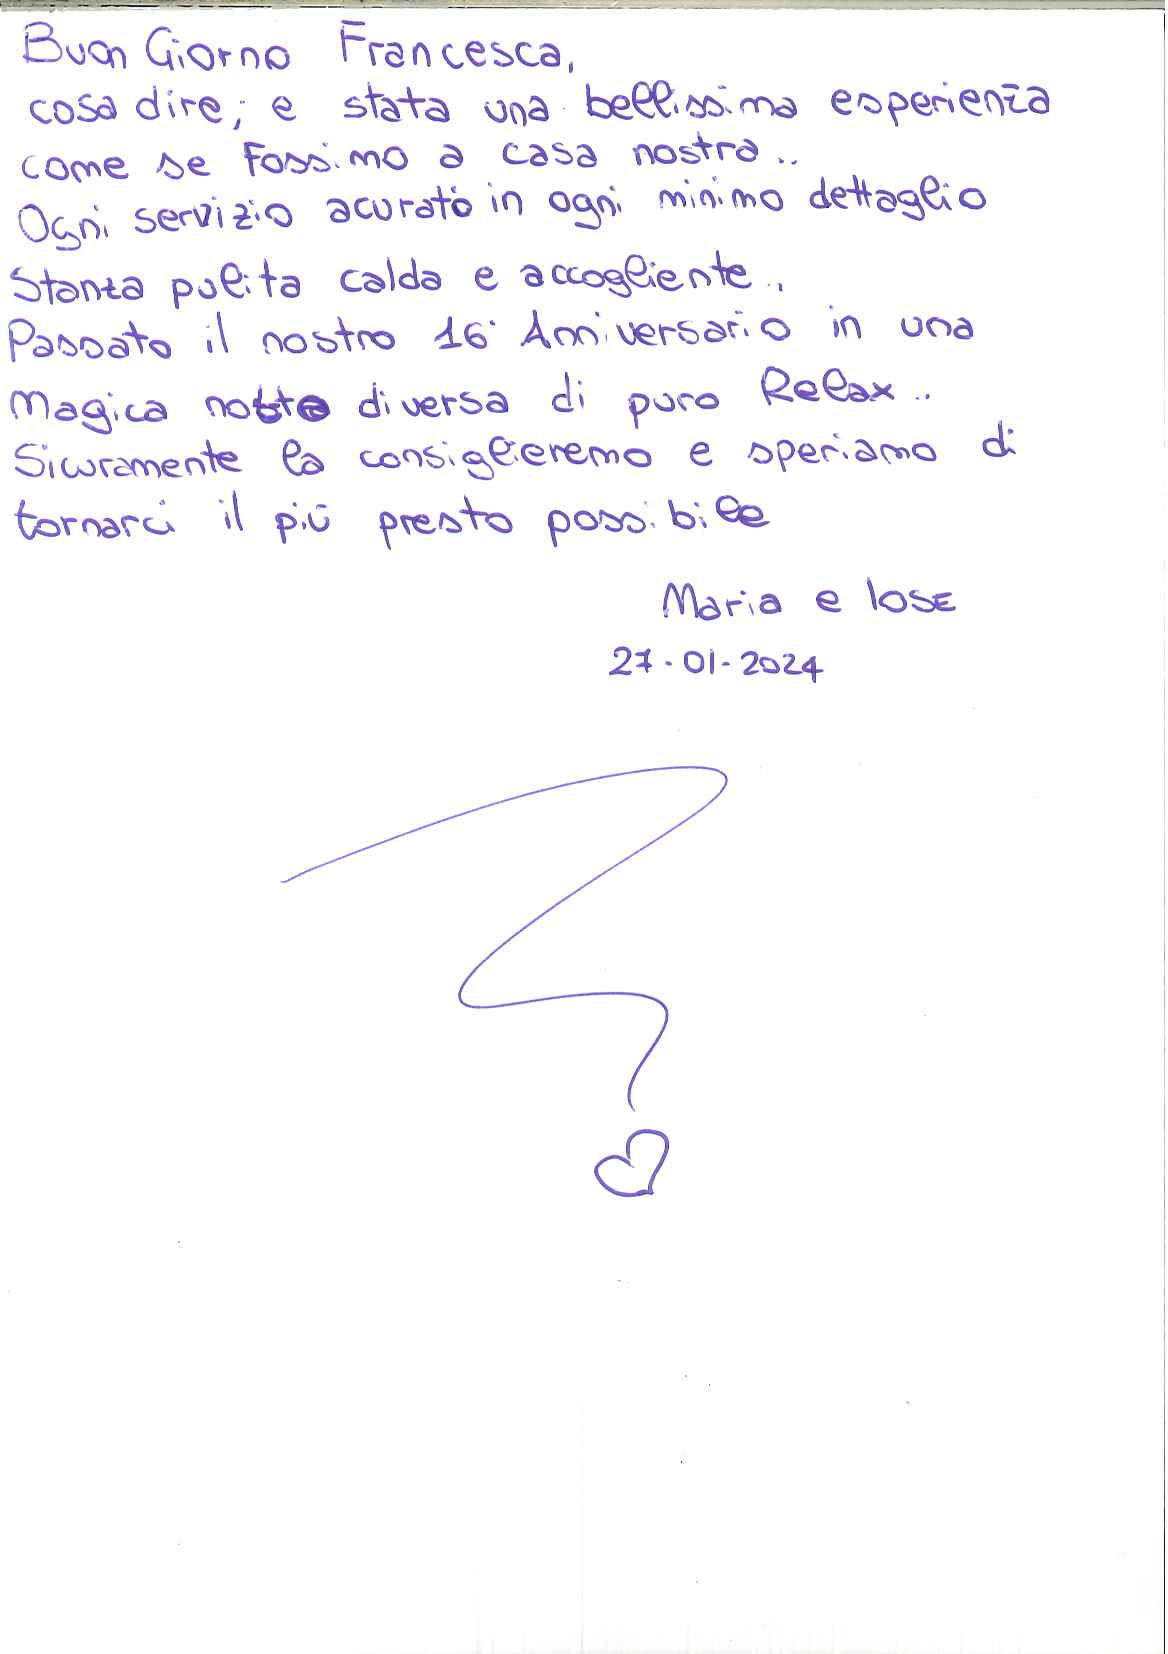 Buon Giorno Francesca,
cosa dire; e stata una bellissima esperienza
come se Fossimo a casa nostra..
Ogni servizio acurato in ogni minimo dettaglio
Stanza pulita calda e accogliente..
Passato il nostro 16° Anniversario in una
Magica notte diversa di puro Relax..
Sicuramente lo consiglieremo e speriamo di
tornarci il più presto possibile
Maria e IOSE
27-01-2024